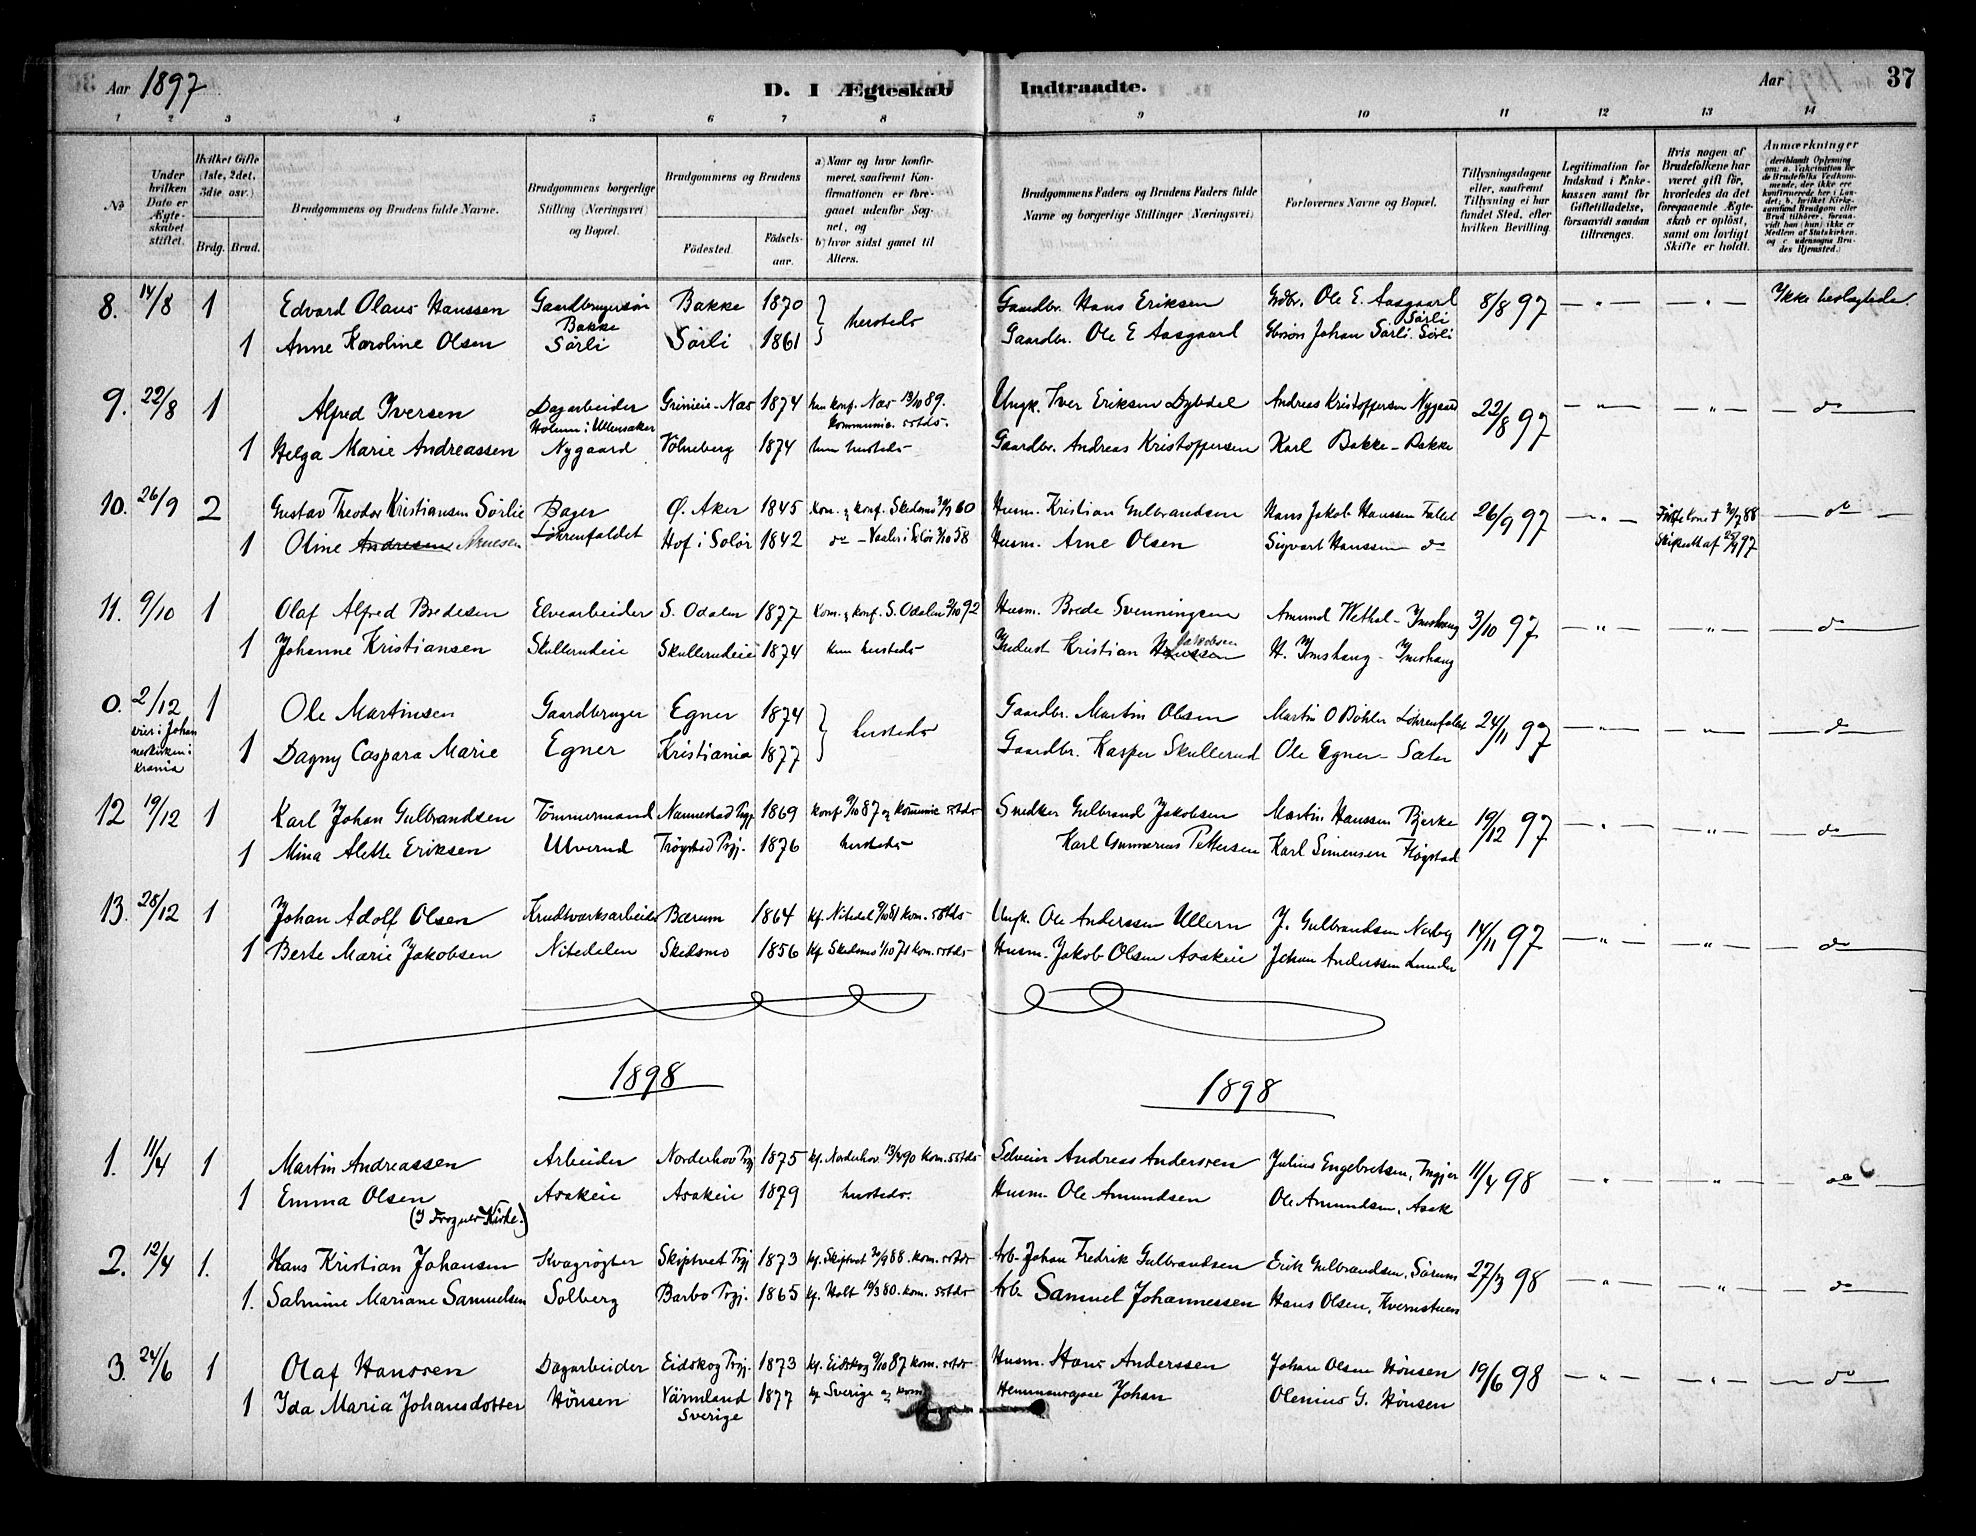 Aar 1897
D. I Ægteskab Indtraadte.
Aar 37
1 2 3 4 5 6 7 8 9 10 11 12 13 14
No
Under hvilken Dato er Ægteskabet stiftet.
Hvilket Gifte (1ste, 2det, 3die, osv.)
Brdg. Brud.
Brudgommens og Brudens fulde Navne.
Brudgommens borgerlige Stilling (Næringsvei) og Bopæl.
Brudgommens og Brudens
Fødested. Fødselsaar.
a) Naar og hvor konfirmeret, saafremt Konfirmationen er foregaaet udenfor Sognet, og
b) hvor sidst gaaet til Alters.
Brudgommens Faders og Brudens Faders fulde Navne og borgerlige Stillinger (Næringsvei)
Forlovernes Navne og Bopæl.
Tillysningsdagene eller, saafremt Tillysning ei har fundet Sted, efter hvilken Bevilling.
Legitimation for Indskud i Enkekassen samt for Giftetilladelse, forsaavidt saadan tiltrænges.
Hvis nogen af Brudefolkene har været gift før, hvorledes da det foregaaende Ægteskab er opløst, samt om lovligt Skifte er holdt.
Anmærkninger
8. 14/8 1 Edvard Olaus Hanssen Gaardbrugersøn Bakke 1870 Gaardbr. Hans Eriksen Gdbr. Ole E. Aasgaard Sørli 8/8 97 — " — — " — Ikke beslægtede.
Bakke
hersteds
1 Anne Karoline Olsen Sørli Sørli 1861 Gaardbr. Ole E Aasgaard Gbrsøn Johan Sørli. Sørli
9. 22/8 1 Alfred Iversen Dagarbeider Grinieie - Næs 1874 han konf. Næs 13/10 89. Ungk. Iver Eriksen Dybdal Andreas Kristoffersen Nygaard 22/8 97 — " — — " — do
Holum i Ullensaker kommunic. sstds.
1 Helga Marie Andreassen Nygaard Vølneberg 1874 hun hersteds Gaardbr. Andreas Kristoffersen Karl Bakke - Bakke
10. 26/9 2 Gustav Theodor Kristiansen Sørlie Bager Ø. Aker 1845 Kom. & konf. Skedsmo 30/9 60 Husm. Kristian Gulbrandsen Hans Jakob Hanssen Fallet 26/9 97 — " — Første Kone † 30/7 88 do
1 Oline Andresen Arnesen Løhrenfaldet Hof i Solør 1842 do - Vaaler i Solør 3/10 58 Husm. Arne Olsen Sigvart Hanssen do Skifteatt af 25/9 97
11. 9/10 1 Olaf Alfred Bredesen Elvearbeider S. Odalen 1877 Kom. & konf. S. Odalen 2/10 92 Husm. Brede Svenningsen Amund Wethal - Imshaug 3/10 97 — " — — " — do
1 Johanne Kristiansen Skullerudeie Skullerudeie 1874 hun hersteds Indest Kristian Hanssen Jakobsen H. Imshaug - Imshaug
0. 2/12 1 Ole Martinsen Gaardbruger Egner 1874 Gaardbr. Martin Olsen Martin O Bøhler Løhrenfaldet 24/11 97 — " — — " — do
viet i Johanneskirken i Krania
hersteds
1 Dagny Caspara Marie Egner Kristiania 1877 Gaardbr. Kasper Skullerud Ole Egner - Sæter
12 19/12 1 Karl Johan Gulbrandsen Tømmermand Nannestad Prgj. 1869 konf 9/10 87 og kommunic sstds Snedker Gulbrand Jakobsen Martin Hanssen Bjerke 19/12 97 — " — — " — do
1 Mina Alette Eriksen Ulverud Trøgstad Prgj. 1876 hersteds Karl Gunnerius Pettersen Karl Simensen Høgstad
13. 28/12 1 Johan Adolf Olsen Krudtværksarbeider Bærum 1864 kf. Nitedal 9/10 81 kom. sstds Ungk. Ole Anderssen Ullern J. Gulbrandsen Nerby 14/11 97 — " — — " — do
1 Berte Marie Jakobsen Nitedalen Skedsmo 1856 kf Skedsmo 1/10 71 kom. sstds Husm. Jakob Olsen Asakeie Johan Anderssen Lunder
1898 1898
1. 11/4 1 Martin Andreassen Arbeider Norderhov Prgj 1875 kf. Norderhov 13/4 90 kom. sstds Selveier Andreas Andersren Julius Engebretsen, Ingjer 11/4 98 — " — — " — do
1 Emma Olsen Asakeie Asakeie 1879 hersteds. Husm. Ole Amundsen Ole Amundsen, Asak
(I Frogner Kirke.)
2. 12/4 1. Hans Kristian Johansen Kvægrøgter Skiptvet Prgj 1873 kf. Skiptvet 30/9 88. kom. sstds Arb. Johan Fredrik Gulbrandsen Erik Gulbrandsen, Sørum 27/3 98 — " — — " — do
1. Salmine Mariane Samuelsen Solberg Barbo Prgj. 1865 kf. Holt 19/3 80. kom. sstds Arb. Samuel Johannessen Hans Olsen, Kvernstuen
3. 24/6 1 Olaf Hansen Dagarbeider Eidskog Prgj. 1873 kf. Eidskog 9/10 87 kom. sstds Husm. Hans Anderssen Johan Olsen Hønsen 19/6 98 — " — — " — do
1 Ida Maria Johansdotter Hønsen Värmland 1877 kf Sverige og kom Hemmansegare Johan Olenius G. Hønsen
Sverige